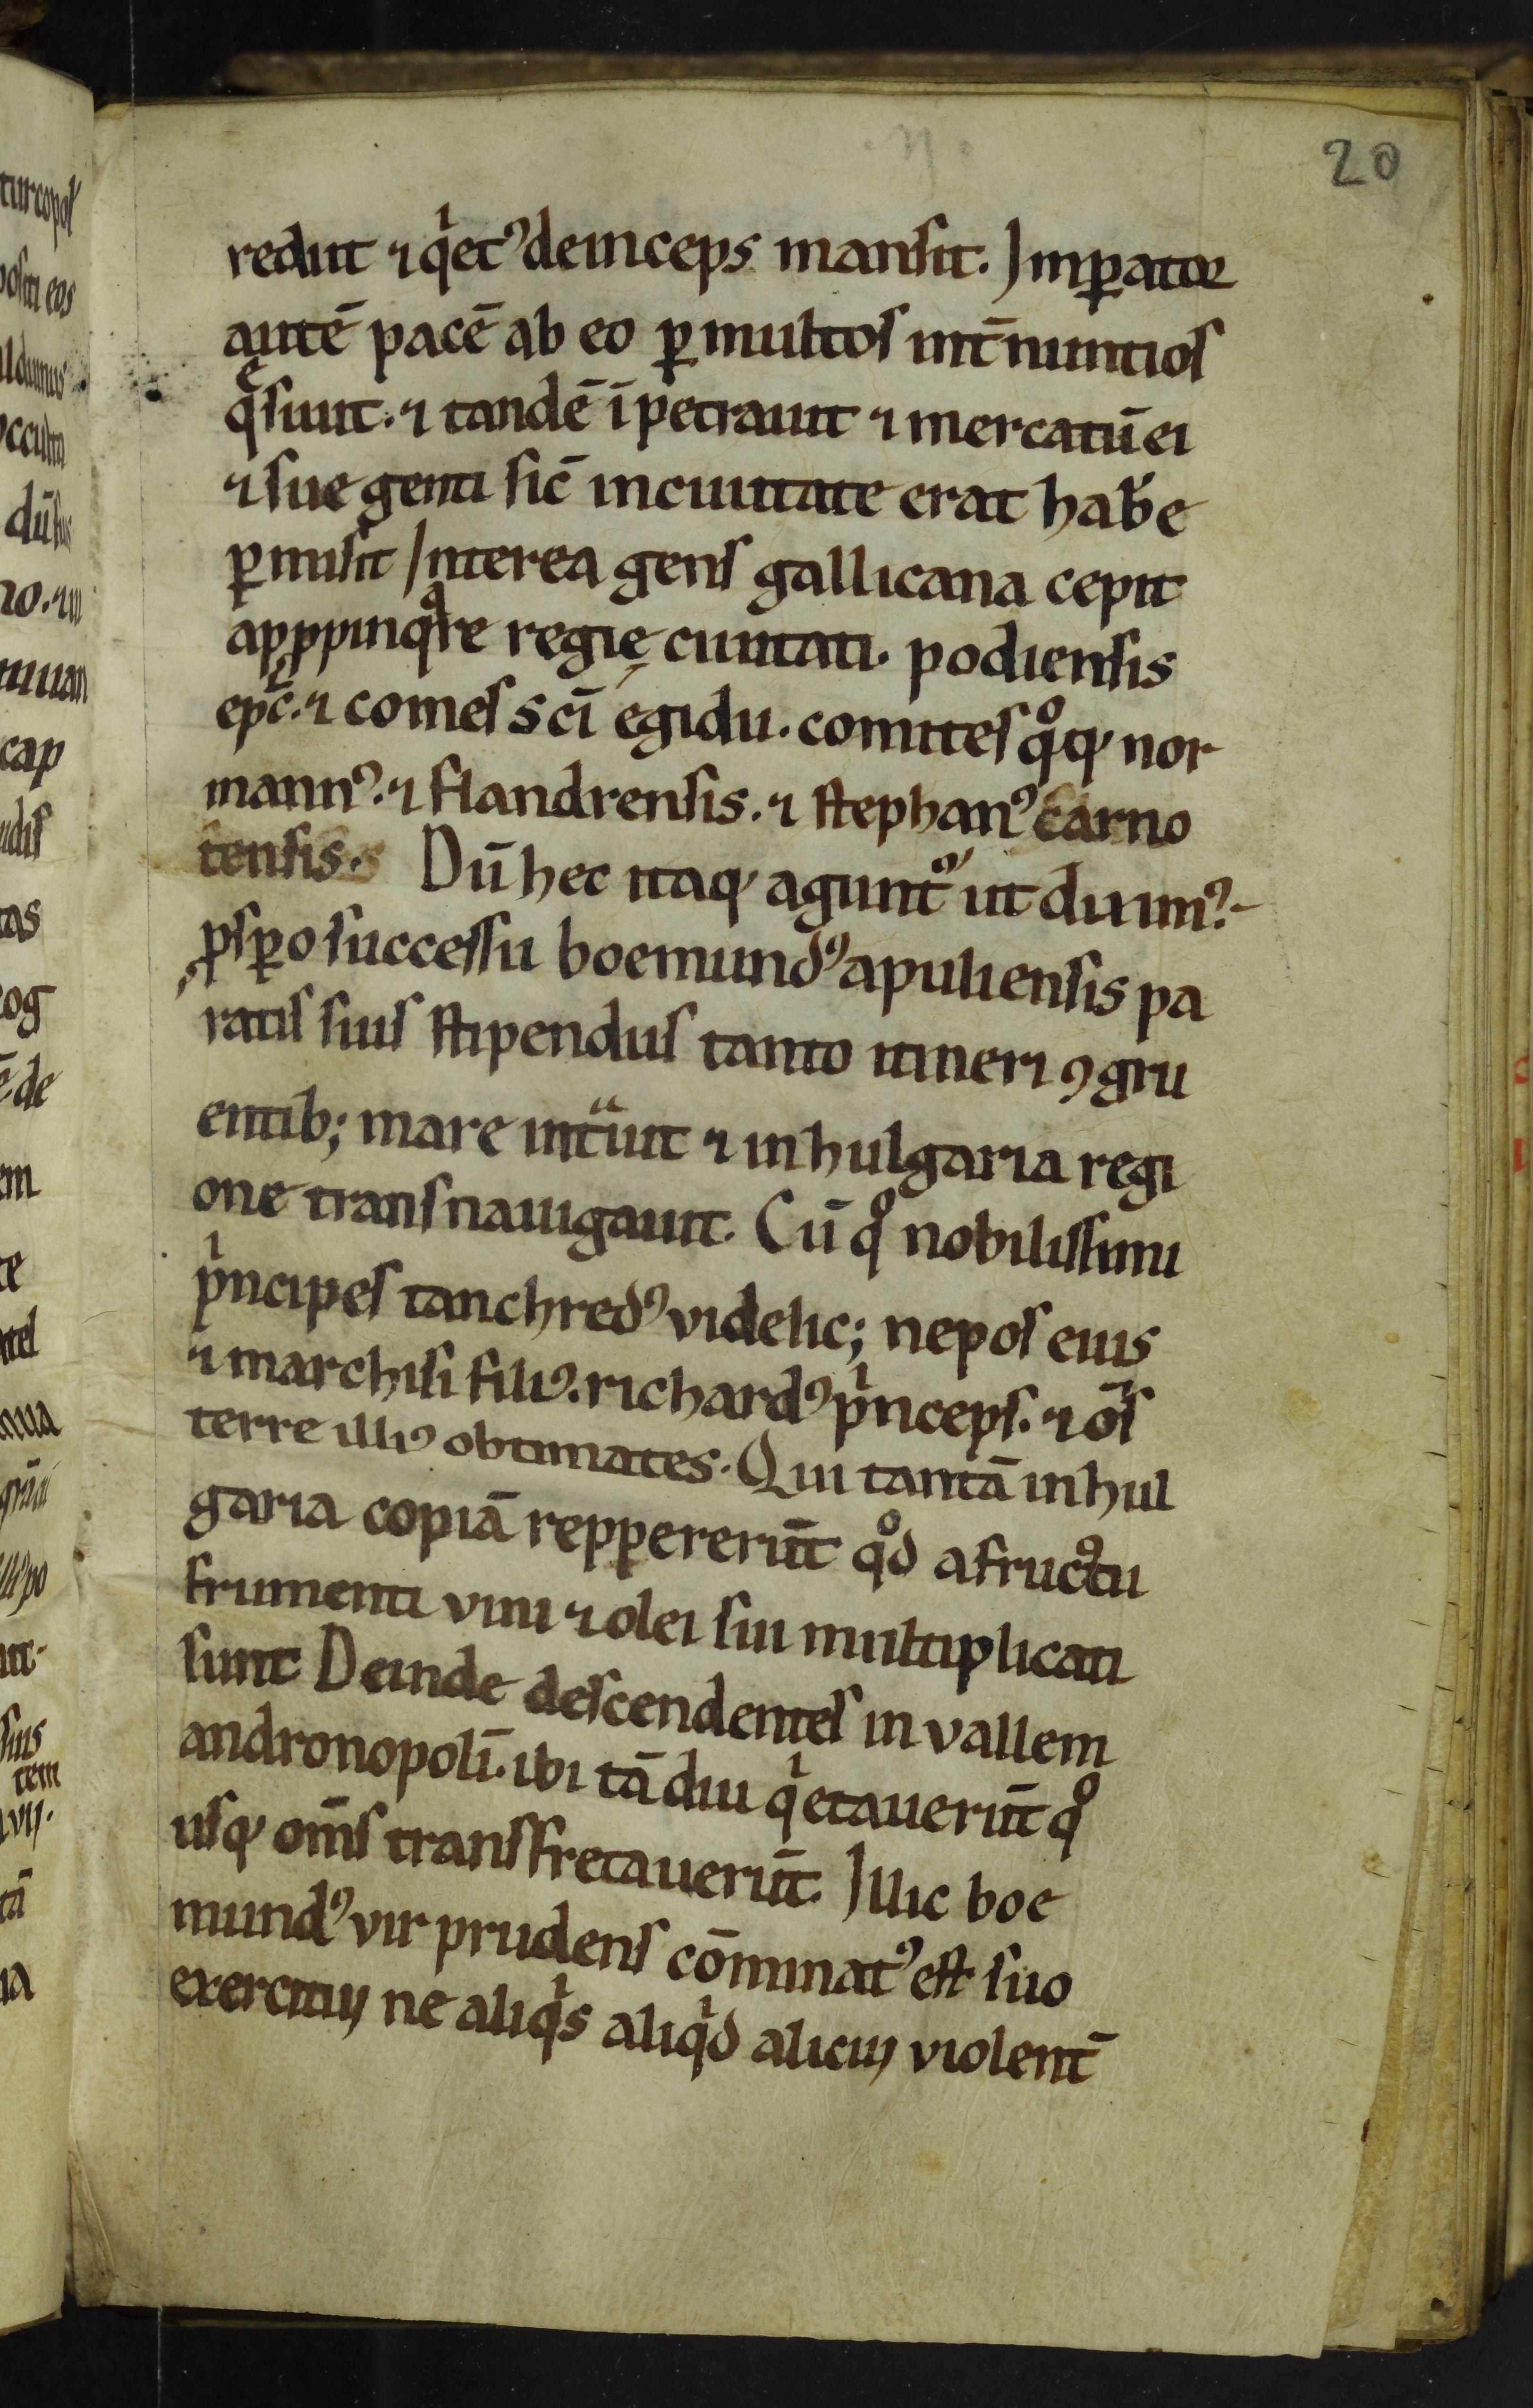 20
rediit ⁊ qͥetꝰ deinceps mansit. Imꝑator
autē pacē ab eo ꝑ multos int̄nuntios
qͤsiuit. ⁊ tandē īpetrauit ⁊ mercatū ei
⁊ sue genti sic̄ in ciuitate erat hab̄e
ꝑmisit Interea gens gallicana cepit
apꝓpinqͣre regię ciuitati. podiensis
ep̄c. ⁊ comes sc̄i egidii. comites qͦꝙ nor
mannꝰ. ⁊ flandrensis. ⁊ stephanꝰ carno
tensis. Dū hec itaꝙ aguntᷣ ut diximꝰ.
ꝓsꝑo successu boemundꝰ apuliensis pa
ratis suis stipendiis tanto itineri ꝯgru
entib; mare int̄uit ⁊ in hulgaria regi
one transnauigauit. Cū qͦ nobilissimi
pͥncipes tanchredꝰ videlic; nepos eius
⁊ marchisi filiꝰ. richardꝰ pͥnceps. ⁊ om̄s
terre illiꝰ obtimates. Qui tantā in hul
garia copiā reppererūt qͦd a fructu
frumenti vini ⁊ olei sui multiplicati
sunt Deinde descendentes in vallem
andronopolī. ibi tā diu qͥetauerūt qͦ
usꝙ om̄s transfretauerūt. Illic boe
mundꝰ vir prudens cōminatꝰ est suo
exercitui ne aliqͥs aliqͥd alicui violent̄